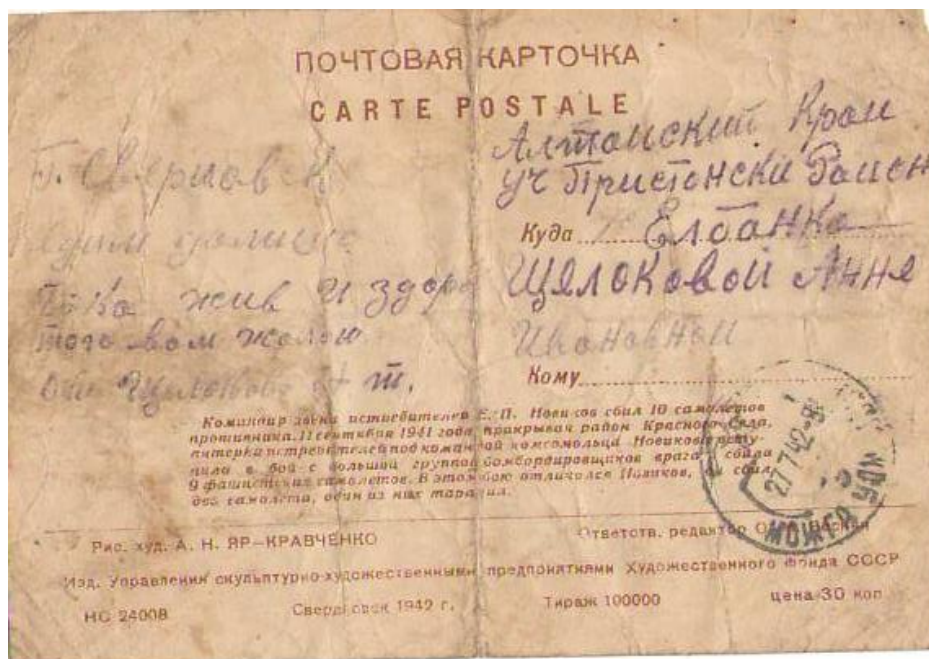 ПОЧТОВАЯ КАРТОЧКА
CARTE POSTALE
Г. Сверловск
пока жив и здоро
того вам желаю
Алтайский Край
УЧ Пристонски Раион
Куда Елбанка
Щялоковой Анне
Ивановной
Кому
Командир звена истребителей Е. П. Новиков сбил 10 самолетов
противника. 11 сентября 1941 года, прикрывая район Красного Села,
пятерка истребителей под командой комсомольца Новикова всту-
пила в бой с большой группой бомбардировщиков врага и сбила
9 фашистских самолетов. В этом бою отличился Новиков, он сбил
два самолета, один из них таранил.
27 7 42
МОЖГА УДМ
Рис. худ. А. Н. ЯР–КРАВЧЕНКО
Ответств. редактор
Изд. Управления скульптурно-художественными предприятиями Художественного Фонда СССР
НС 24008
Свердловск 1942 г.
Тираж 100000
цена 30 коп